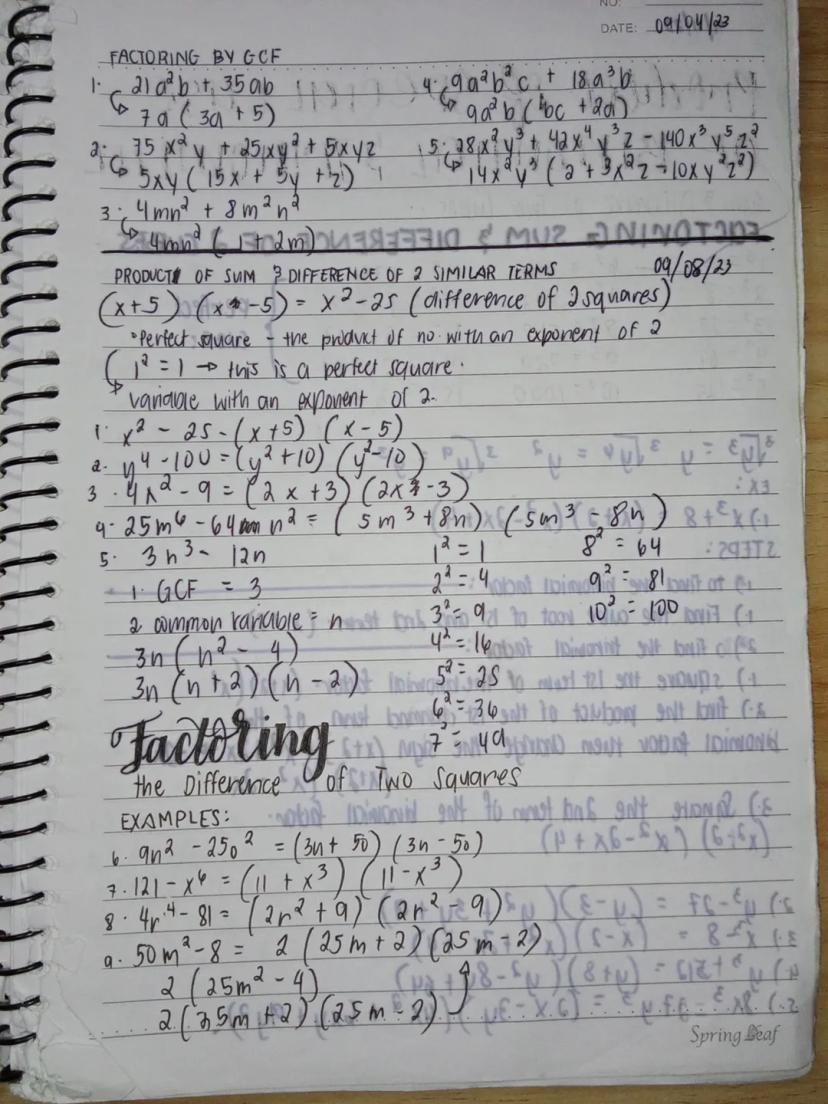 NO:
DATE: 09/04/23
FACTORING BY GCF
1. 21a²b + 35ab
↳ 7a (3a + 5)
2. 75x²y + 25xy² + 5xyz
↳ 5xy (15x + 5y + z)
3. 4mn² + 8m²n²
↳ 4mn² (1 + 2m)
4. 9a²b²c + 18a³b
↳ 9a²b (bc + 2a)
5. 28x²y³ + 42x⁴y³z - 140x³y⁵z²
↳ 14x²y³ (2 + 3x²z - 10xy²z²)
PRODUCT OF SUM & DIFFERENCE OF 2 SIMILAR TERMS 09/08/23
(x+5) (x-5) = x² - 25 (difference of 2 squares)
• Perfect square - the product of no. with an exponent of 2
1² = 1 → this is a perfect square.
variable with an exponent of 2.
1. x² - 25 - (x+5) (x-5)
2. y⁴ - 100 = (y² + 10) (y² - 10)
3. 4x² - 9 = (2x+3) (2x-3)
4. 25m⁶ - 64n² = (5m³ + 8n) (5m³ - 8n)
5. 3n³ - 12n
1. GCF = 3
2 common variable = n
3n (n² - 4)
3n (n+2) (n-2)
1² = 1
2² = 4
3² = 9
4² = 16
5² = 25
6² = 36
7² = 49
8² = 64
9² = 81
10² = 100
Factoring
the Difference of Two Squares
EXAMPLES:
6. 9n² - 25o² = (3n + 5o) (3n - 5o)
7. 121 - x⁶ = (11 + x³) (11 - x³)
8. 4r⁴ - 81 = (2r² + 9) (2r² - 9)
9. 50m² - 8 = 2 (25m + 2) (25m - 2)
2 (25m² - 4)
2 (25m + 2) (25m - 2)
Spring Leaf